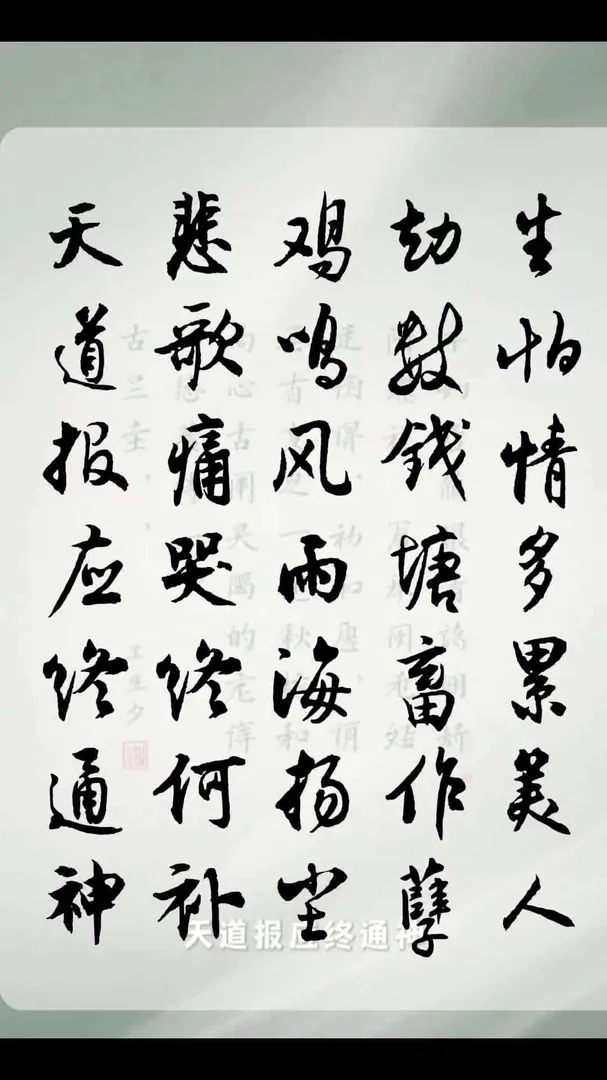 生怕情多累美人
劫数钱塘畜作孽
鸡鸣风雨海扬尘
悲歌痛哭终何补
天道报应终通神
天道报应终通神